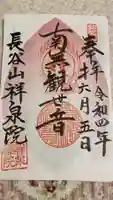 奉拝 令和四年
六月五日
南無観世音
長谷山祥泉院